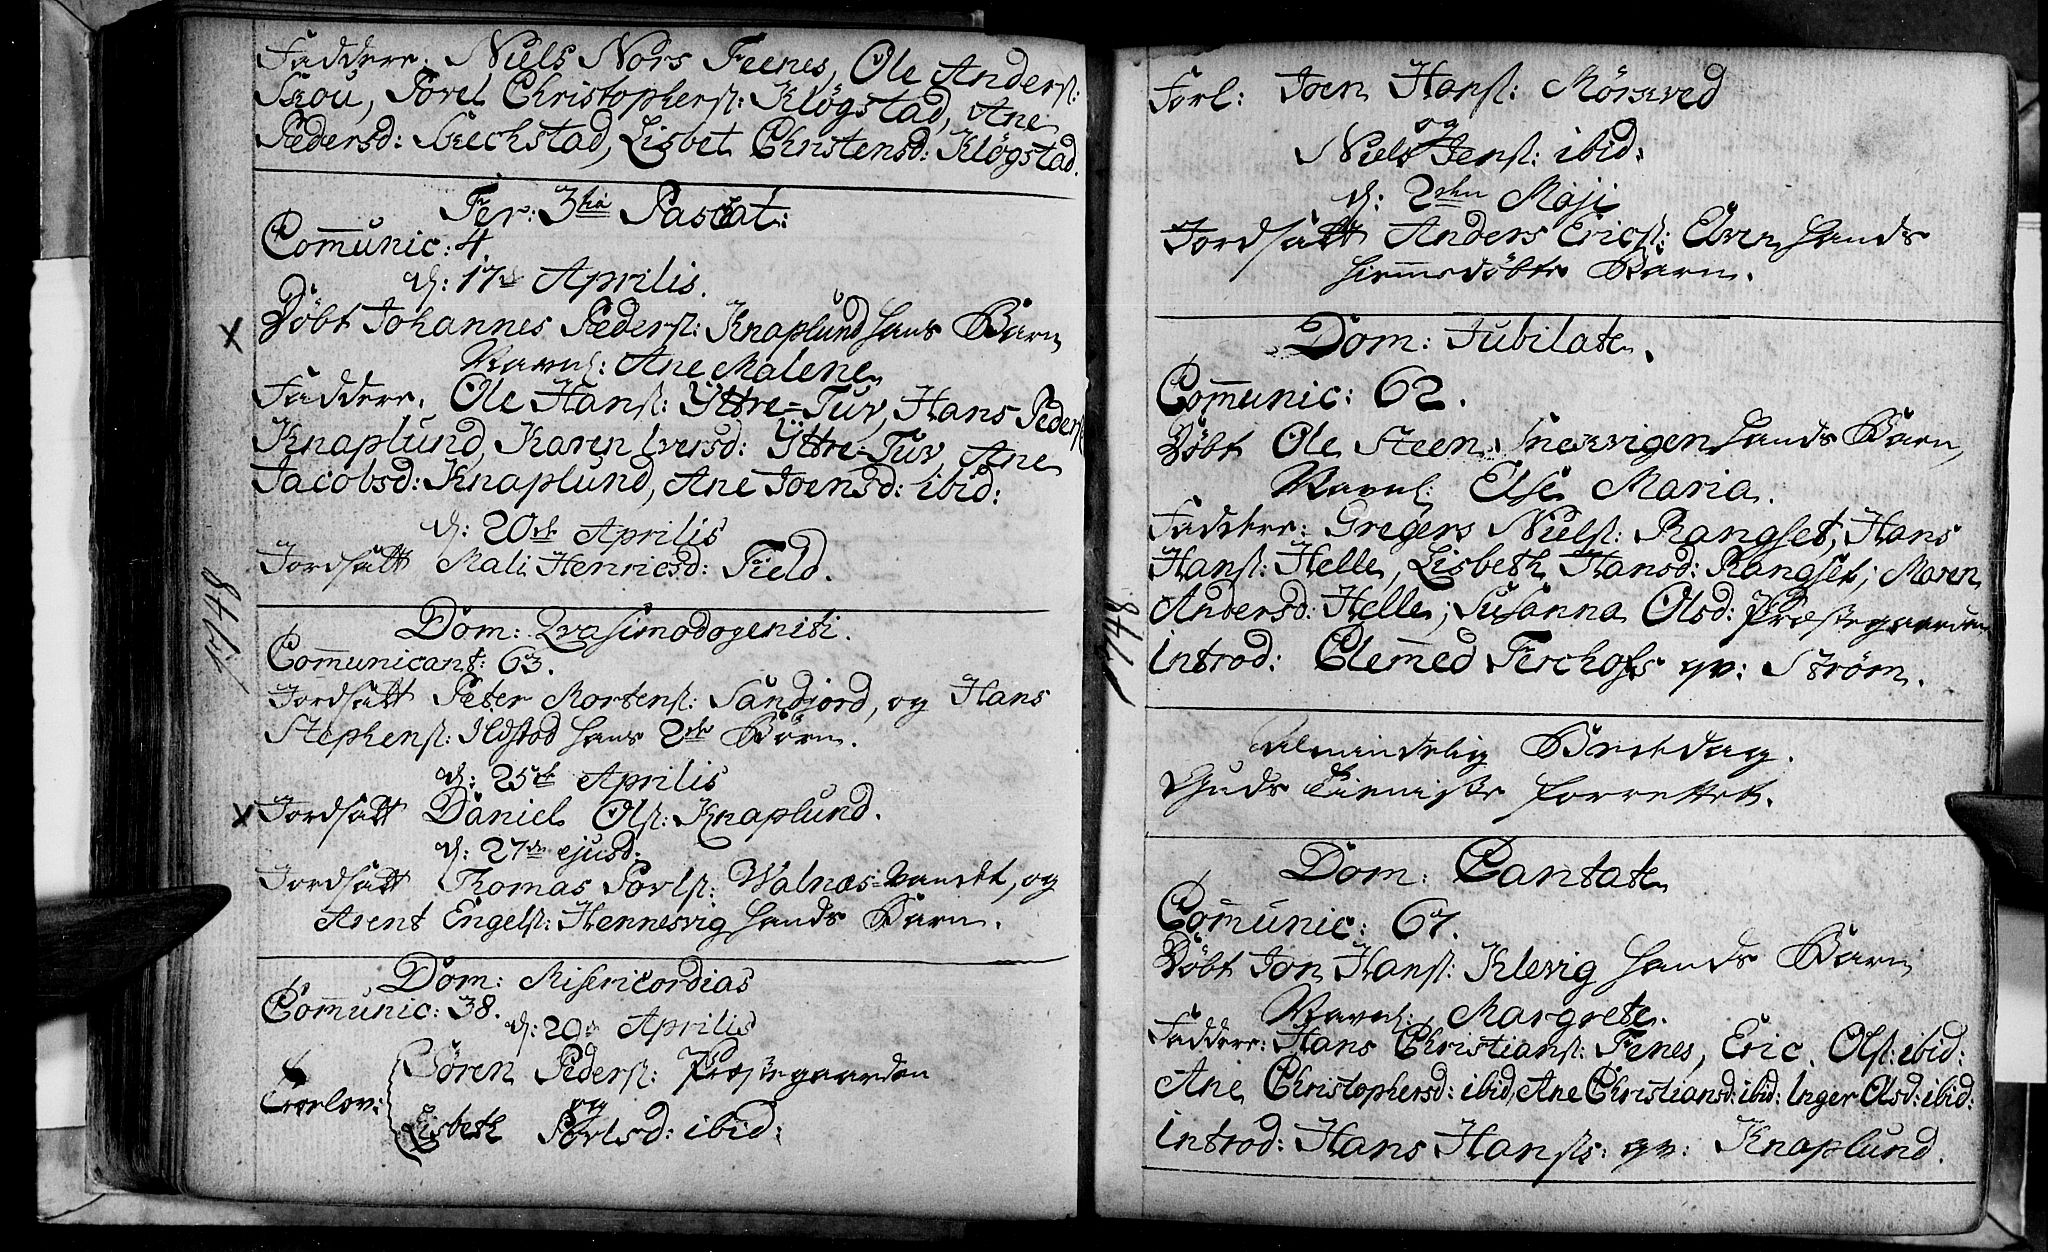 Faddere: Niels Nors Feenes, Ole Anders:
Skou, Povel Christophers: Kløgstad, Ane
Pedersd: Skeckstad, Lisbet Christensd: Kløgstad.
Fer: 3tia Paschat:
Communic: 4
d: 17de Aprilis.
Døbt Johannes Peders: Knaplund hans Barn
Navnl: Ane Malene
Faddere. Ole Hans: Yttre-Tuv, Hans Peders:
Knaplund, Karen Iversd: Yttre-Tuv, Ane
Jacobsd: Knaplund, Ane Joensd: ibid:
d: 20de Aprilis
Jordsatt Mali Henricsd: Field.
1748
Dom: Qvasimodogeniti.
Communicant: 63.
Jordsatt Peter Mortens: Sandjord, og Hans
Stephens: Ildstad hans 2de Børn.
d: 25de Aprilis
Jordsatt Daniel Ols: Knaplund.
d: 27de ejusd:
Jordsatt Thomas Povls: Walnæs-vandet, og
Arent Engels: Hennesvig hands Barn.
Dom: Misericordias
Communic: 38.
d: 29de Aprilis
Trolov: Søren Peders: Præstegaarden
og
Lisbeth Povlsd: ibid:
Forl: Joen Hans: Mørkved
og
Niels Jens: ibid:
d: 2den Maji
Jordsatt Anders Erics: Elven hands
hiemmedøbte Barn.
Dom: Jubilate.
Communic: 62.
Døbt Ole Steen Snekvigen hands Barn,
Navnl: Else Maria.
Faddere: Gregers Niels: Rangset, Hans
Hans: Helle, Lisbeth Hansd: Rangset, Maren
Andersd: Helle, Susanna Olsd: Præstegaarden
introd: Clemmed Ferchofs qv: Strøm.
1748
Almindelig Beededag.
Guds Tieniste forrettet.
Dom: Cantate
Communic: 67.
Døbt Jon Hans: Klevig hands Barn
Navnl: Margrete.
Faddere: Hans Christians: Fenes, Eric Ols: ibid:
Ane Christophersd: ibid, Ane Christiansd: ibid: Inger Olsd: ibid:
introd: Hans Hanss: qv: Knaplund.